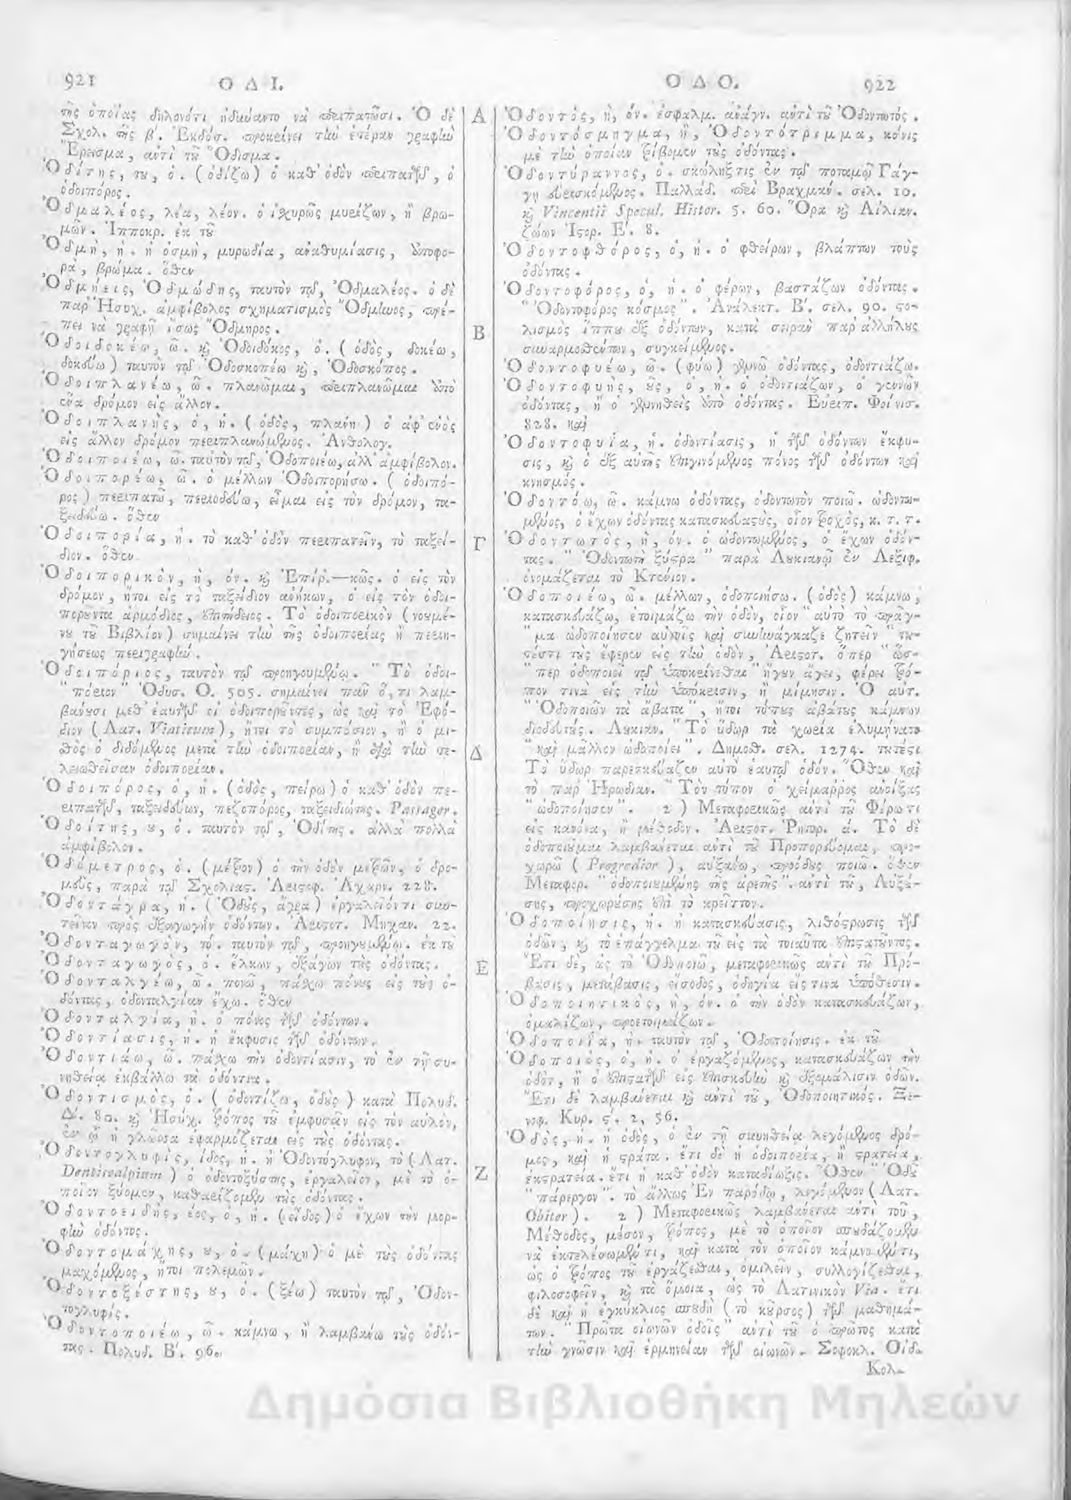 921 Ο Δ Ι.
τῆς ὁποίας δηλονότι ἠδύναντο νὰ περιπατῶσι. Ὁ δὲ
Σχολ. τῆς β'. Ἐκδόσ. προκρίνει τὴν ἑτέραν γραφὴν
Ἔρεισμα, ἀντὶ τοῦ Ὅδισμα.
Ὁδίτης, ου, ὁ. (ὁδίζω) ὁ καθ' ὁδὸν περιπατῶν, ὁ
ὁδοιπόρος.
Ὀδμαλέος, λέα, λέον. ὁ ἰσχυρῶς μυρίζων, ἢ βρω-
μῶν. Ἱπποκρ. ἐκ τοῦ
Ὀδμὴ, ἡ. ἡ ὀσμὴ, μυρωδία, ἀναθυμίασις, ἀποφο-
ρὰ, βρῶμα. ὅθεν
Ὀδμήεις, Ὀδμώδης, ταυτὸν τῷ, Ὀδμαλέος. ὁ δὲ
παρ' Ἡσυχ. ἀμφίβολος σχηματισμὸς πρέ-
πει νὰ γραφῇ ἴσως Ὄδμηρος.
Ὁδοιδοκέω, ῶ. καὶ Ὁδοιδόκος, ὁ. (ὁδὸς, δοκέω,
δοκεύω) ταυτὸν τῷ Ὁδοσκοπέω καὶ, Ὁδοσκόπος.
Ὁδοιπλανέω, ῶ. πλανῶμαι, περιπλανῶμαι ἀπὸ
ἕνα δρόμον εἰς ἄλλον.
Ὁδοιπλανὴς, ὁ, ἡ. (ὁδὸς, πλανὴ) ὁ ἀφ' ἑνὸς
εἰς ἄλλον δρόμον περιπλανώμενος. Ἀνθολογ.
Ὁδοιποιέω, ῶ. ταυτὸν τῷ, Ὁδοποιέω, ἀλλ' ἀμφίβολον.
Ὁδοιπορέω, ῶ. ὁ μέλλων Ὁδοιπορήσω. (ὁδοιπό-
ρος) περιπατῶ, περιοδεύω, εἶμαι εἰς τὸν δρόμον, τα-
ξειδεύω. ὅθεν
Ὁδοιπορία, ἡ. τὸ καθ' ὁδὸν περιπατεῖν, τὸ ταξεί-
διον. ὅθεν
Ὁδοιπορικὸν, ἡ, ὀν. καὶ Ἐπίρ.—κῶς. ὁ εἰς τὸν
δρόμον, ἤτοι εἰς τὸ ταξείδιον ἀνήκων, ὁ εἰς τὸν ὁδοι-
ποροῦντα ἁρμόδιος, ἐπιτήδειος. Τὸ ὁδοιπορικὸν (νοουμέ-
νου τοῦ Βιβλίον) σημαίνει τὴν τῆς ὁδοιπορίας ἢ περιη-
γήσεως περιγραφὴν.
Ὁδοιπόριος, ταυτὸν τῷ προηγουμένῳ. " Τὸ ὁδοι-
" πόριον " Ὀδυσ. Ο. 505. σημαίνει πᾶν ὅ,τι λαμ-
βάνουσι μεθ' ἑαυτῶν οἱ ὁδοιποροῦντες, ὡς καὶ τὸ Ἐφό-
διον (Λατ. Viaticum), ἤτοι τὸ συμπόσιον, ἢ ὁ μι-
σθὸς ὁ διδόμενος μετὰ τὴν ὁδοιπορίαν, ἢ διὰ τὴν τε-
λειωθεῖσαν ὁδοιπορίαν.
Ὁδοιπόρος, ὁ, ἡ. (ὁδὸς, πείρω) ὁ καθ' ὁδὸν πε-
ριπατῶν, ταξειδεύων, πεζοπόρος, ταξειδιώτης. Passager.
Ὁδοίτης, ου, ὁ. ταυτὸν τῷ, Ὁδίτης. ἀλλὰ πολλὰ
ἀμφίβολον.
Ὁδόμετρος, ὁ. (μέτρον) ὁ τὴν ὁδὸν μετρῶν, ὁ δρο-
μεὺς, παρὰ τῷ Σχολιας. Ἀριστοφ. Ἀχαρν. 228.
Ὀδοντάγρα, ἡ. (Ὀδοὺς, ἄγρα) ἐργαλεῖόν τι συν-
τεῖνον πρὸς ἐξαγωγὴν ὀδόντων. Ἀριστοτ. Μηχαν. 22.
Ὀδονταγωγὸν, τό. ταυτὸν τῷ, προηγουμένῳ. ἐκ τοῦ
Ὀδονταγωγὸς, ὁ. ἕλκων, ἐξάγων τοὺς ὀδόντας.
Ὀδονταλγέω, ῶ. πονῶ, πάσχω πόνους εἰς τοὺς ὀ-
δόντας, ὀδονταλγίαν ἔχω. ὅθεν
Ὀδονταλγία, ἡ. ὁ πόνος τῶν ὀδόντων.
Ὀδοντίασις, ἡ. ἡ ἔκφυσις τῶν ὀδόντων.
Ὀδοντιάω, ῶ. πάσχω τὴν ὀδοντίασιν, τὸ ἐν τῇ συ-
νηθείᾳ ἐκβάλλω τὰ ὀδόντια.
Ὀδοντισμὸς, ὁ. (ὀδοντίζω, ὀδοὺς) κατὰ Πολυδ.
Δ'. 80. καὶ Ἡσύχ. τρόπος τοῦ ἐμφυσᾶν εἰς τὸν αὐλὸν,
ἐν ᾧ ἡ γλῶσσα ἐφαρμόζεται εἰς τοὺς ὀδόντας.
Ὀδοντογλυφὶς, ίδος, ἡ. ἡ Ὀδοντόγλυφον, τὸ (Λατ.
Dentiscalpium) ὁ ὀδοντοξύστης, ἐργαλεῖον, μὲ τὸ ὁ-
ποῖον ξύομεν, καθαρίζομεν τοὺς ὀδόντας.
Ὀδοντοειδὴς, έος, ὁ, ἡ. (εἶδος) ὁ ἔχων τὴν μορ-
φὴν ὀδόντος.
Ὀδοντομάχης, ου, ὁ. (μάχη) ὁ μὲ τοὺς ὀδόντας
μαχόμενος, ἤτοι πολεμῶν.
Ὀδοντοξέστης, ου, ὁ. (ξέω) ταυτὸν τῷ, Ὀδον-
τογλυφίς.
Ὀδοντοποιέω, ῶ. κάμνω, ἢ λαμβάνω τοὺς ὀδόν-
τας. Πολυδ. Β'. 96.
Α
Β
Γ
Δ
Ε
Ζ
Ο Δ Ο. 922
Ὀδοντὸς, ἡ, ὀν. ἐσφαλμ. ἀνάγν. ἀντὶ τοῦ Ὀδοντωτός.
Ὀδοντόσμηγμα, ἢ, Ὀδοντότριμμα, κόνις
μὲ τὴν ὁποίαν τρίβομεν τοὺς ὀδόντας.
Ὀδοντύραννος, ὁ. σκώληξ τις ἐν τῷ ποταμῷ Γάγ-
γῃ εὑρισκόμενος. Παλλάδ. περὶ Βραχμάν. σελ. 10.
καὶ Vincentii Specul. Histor. 5. 60. Ὅρα καὶ Αἰλιαν.
ζώων Ἱστορ. Ε'. 8.
Ὀδοντοφθόρος, ὁ, ἡ. ὁ φθείρων, βλάπτων τοὺς
ὀδόντας.
Ὀδοντοφόρος, ὁ, ἡ. ὁ φέρων, βαστάζων ὀδόντας.
" Ὀδοντοφόρος κόσμος ". Ἀνάλεκτ. Β'. σελ. 90. στο-
λισμὸς ἵππου ἐξ ὀδόντων, κατὰ σειρὰν παρ' ἀλλήλους
συναρμοσθέντων, συγκείμενος.
Ὀδοντοφυέω, ῶ. (φύω) γεννῶ ὀδόντας, ὀδοντιάζω.
Ὀδοντοφυὴς, οῦς, ὁ, ἡ. ὁ ὀδοντιάζων, ὁ γεννῶν
ὀδόντας, ἢ ὁ γεννηθεὶς ἀπὸ ὀδόντας. Εὐριπ. Φοίνισ.
828. καὶ
Ὀδοντοφυΐα, ἡ. ὀδοντίασις, ἡ τῶν ὀδόντων ἔκφυ-
σις, καὶ ὁ ἐξ αὐτῆς ἐπιγινόμενος πόνος τῶν ὀδόντων καὶ
κνησμός.
Ὀδοντόω, ῶ. κάμνω ὀδόντας, ὀδοντωτὸν ποιῶ. ὠδοντω-
μένος, ὁ ἔχων ὀδόντας κατασκευαστοὺς, οἷον τροχὸς, κ. τ. τ.
Ὀδοντωτὸς, ἡ, ὀν. ὁ ὠδοντωμένος, ὁ ἔχων ὀδόν-
τας. " Ὀδοντωτὴ ξύστρα " παρὰ Λουκιανῷ ἐν Λεξιφ.
ὀνομάζεται τὸ Κτενίον.
Ὁδοποιέω, ῶ. μέλλων, ὁδοποιήσω. (ὁδὸς) κάμνω,
κατασκευάζω, ἑτοιμάζω τὴν ὁδὸν, οἷον " αὐτὸ τὸ πρᾶγ-
" μα ὡδοποίησεν αὐτοῖς καὶ συνηνάγκαζε ζητεῖν " του-
τέστι τοὺς ἔφερεν εἰς τὴν ὁδὸν, Ἀριστοτ. ὅπερ " ὥσ-
" περ ὁδοποιοῖ τῷ ὑποκείνεσθαι " ἤγουν ἄγει, φέρει τρό-
πον τινὰ εἰς τὴν ὑπόκεισιν, ἢ μίμησιν. Ὁ αὐτ.
" Ὁδοποιῶν τὰ ἄβατα ", ἤτοι τόπους ἀβάτους κάμνων
διοδεύτους. Λουκιαν. " Τὸ ὕδωρ τὰ χωρία ἐλυμήνατο
" καὶ μᾶλλον ὡδοποίει ". Δημοσθ. σελ. 1274. τουτέστι
Τὸ ὕδωρ παρεσκεύαζεν αὐτὸ ἑαυτῷ ὁδόν. Ὅθεν καὶ
τὸ παρ' Ἡρωδιαν. " Τὸν τόπον ὁ χείμαρρος ἀνοίξας
" ὡδοποίησεν ". 2 ) Μεταφορικῶς ἀντὶ τοῦ Φέρω τι
εἰς κανόνα, ἢ μέθοδον. Ἀριστοτ. Ῥητορ. ά. Τὸ δὲ
ὁδοποιοῦμαι λαμβάνεται ἀντὶ τοῦ Προπορεύομαι, προ-
χωρῶ (Progredior), αὐξάνω, προόδους ποιῶ. ὅθεν
Μεταφορ. " ὁδοποιουμένης τῆς ἀρετῆς ". ἀντὶ τοῦ, Αὐξά-
σης, προχωρούσης ἐπὶ τὸ κρεῖττον.
Ὁδοποίησις, ἡ. ἡ κατασκεύασις, λιθόστρωσις τῶν
ὁδῶν, καὶ τὸ ἐπάγγελμα τοῦ εἰς τὰ τοιαῦτα ἐπιστατοῦντος.
Ἔτι δὲ, ὡς τὸ Ὁδοποιῶ, μεταφορικῶς ἀντὶ τοῦ Πρό-
βασις, μετάβασις, εἴσοδος, ὁδηγία εἴς τινα ὑπόθεσιν.
Ὁδοποιητικὸς, ἡ, ὀν. ὁ τὴν ὁδὸν κατασκευάζων,
ὁμαλίζων, προετοιμάζων.
Ὁδοποιΐα, ἡ. ταυτὸν τῷ, Ὁδοποίησις. ἐκ τοῦ
Ὁδοποιὸς, ὁ, ἡ. ὁ ἐργαζόμενος, κατασκευάζων τὴν
ὁδὸν, ἢ ὁ ἐπιστατῶν εἰς ἐπισκευὴν καὶ ἐξομάλισιν ὁδῶν.
Ἔτι δὲ λαμβάνεται καὶ ἀντὶ τοῦ, Ὁδοποιητικός. Ξε-
νοφ. Κυρ. ϛ'. 2, 36.
Ὁδὸς, ἡ. ἡ ὁδὸς, ὁ ἐν τῇ συνηθείᾳ λεγόμενος δρό-
μος, καὶ ἡ στράτα. ἔτι δὲ ἡ ὁδοιπορία, ἡ στρατεία,
ἐκστρατεία. ἔτι ἡ καθ' ὁδὸν καταδίωξις. Ὅθεν " Ὁδοῦ
" πάρεργον ". τὸ ἄλλως Ἐν παρόδῳ, λεγόμενον (Λατ.
Obiter). 2 ) Μεταφορικῶς λαμβάνεται ἀντὶ τοῦ,
Μέθοδος, μέσον, τρόπος, μὲ τὸ ὁποῖον σπουδάζομεν
νὰ ἐκτελέσωμέν τι, καὶ κατὰ τὸν ὁποῖον κάμνομέν τι,
ὡς ὁ τρόπος τοῦ ἐργάζεσθαι, ὁμιλεῖν, συλλογίζεσθαι,
φιλοσοφεῖν, καὶ τὰ ὅμοια, ὡς τὸ Λατινικὸν Via. ἔτι
δὲ καὶ ἡ ἐγκύκλιος σπουδὴ (τὸ κοῦρσος) τῶν μαθημά-
των. " Πρῶτα οἰωνῶν ὁδοῖς " ἀντὶ τοῦ ὁ πρῶτος κατὰ
τὴν γνῶσιν καὶ ἑρμηνείαν τῶν οἰωνῶν. Σοφοκλ. Οἰδ.
Κολ.
Δημόσια Βιβλιοθήκη Μηλεών